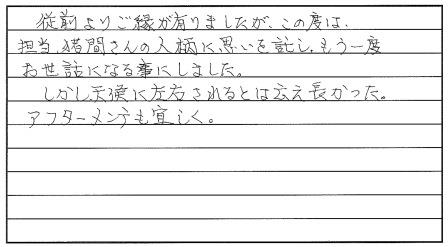 従前よりご縁が有りましたが、この度は、
担当、猪間さんの人柄に思いを託し、もう一度
お世話になる事にしました。
しかし天候に左右されるとは云え長かった。
アフターメンテも宜しく。